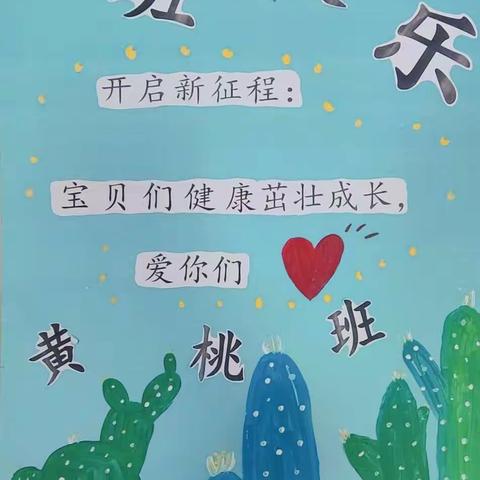 班
乐
开启新征程：
宝贝们健康茁壮成长，
爱你们
黄桃班